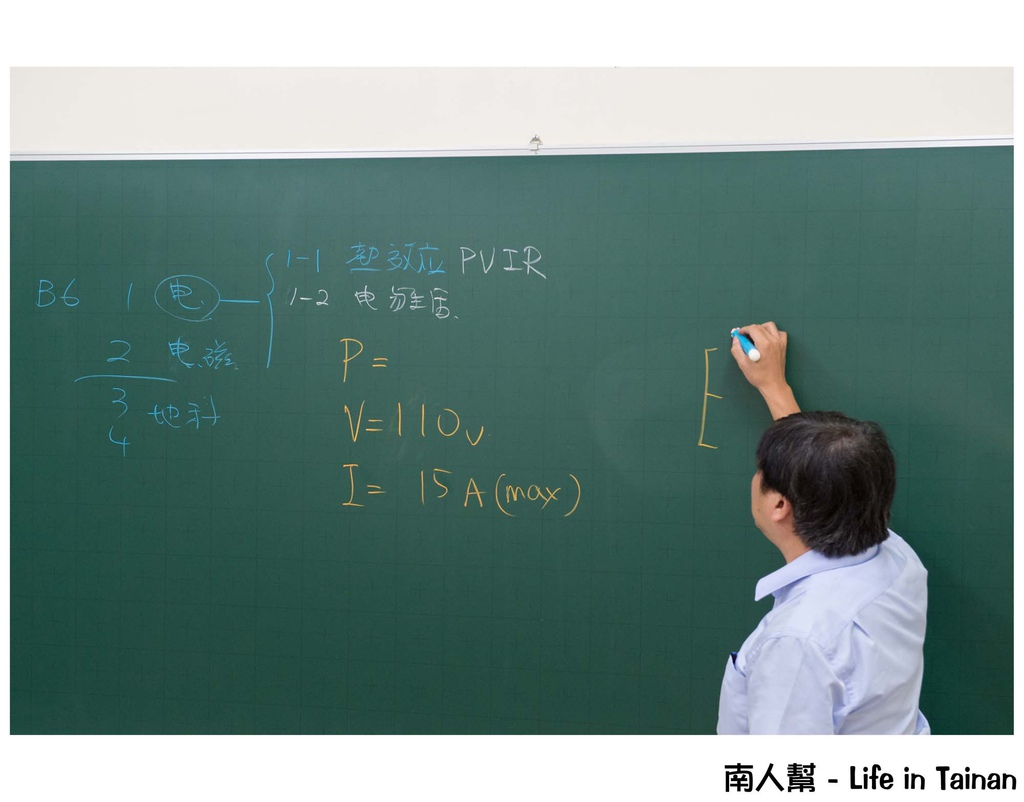 B6 1 电
1-1 热效应 PVIR
1-2 电
2 电磁
3 地科
4
P=
V=110v
I= 15A(max)
南人幫 - Life in Tainan